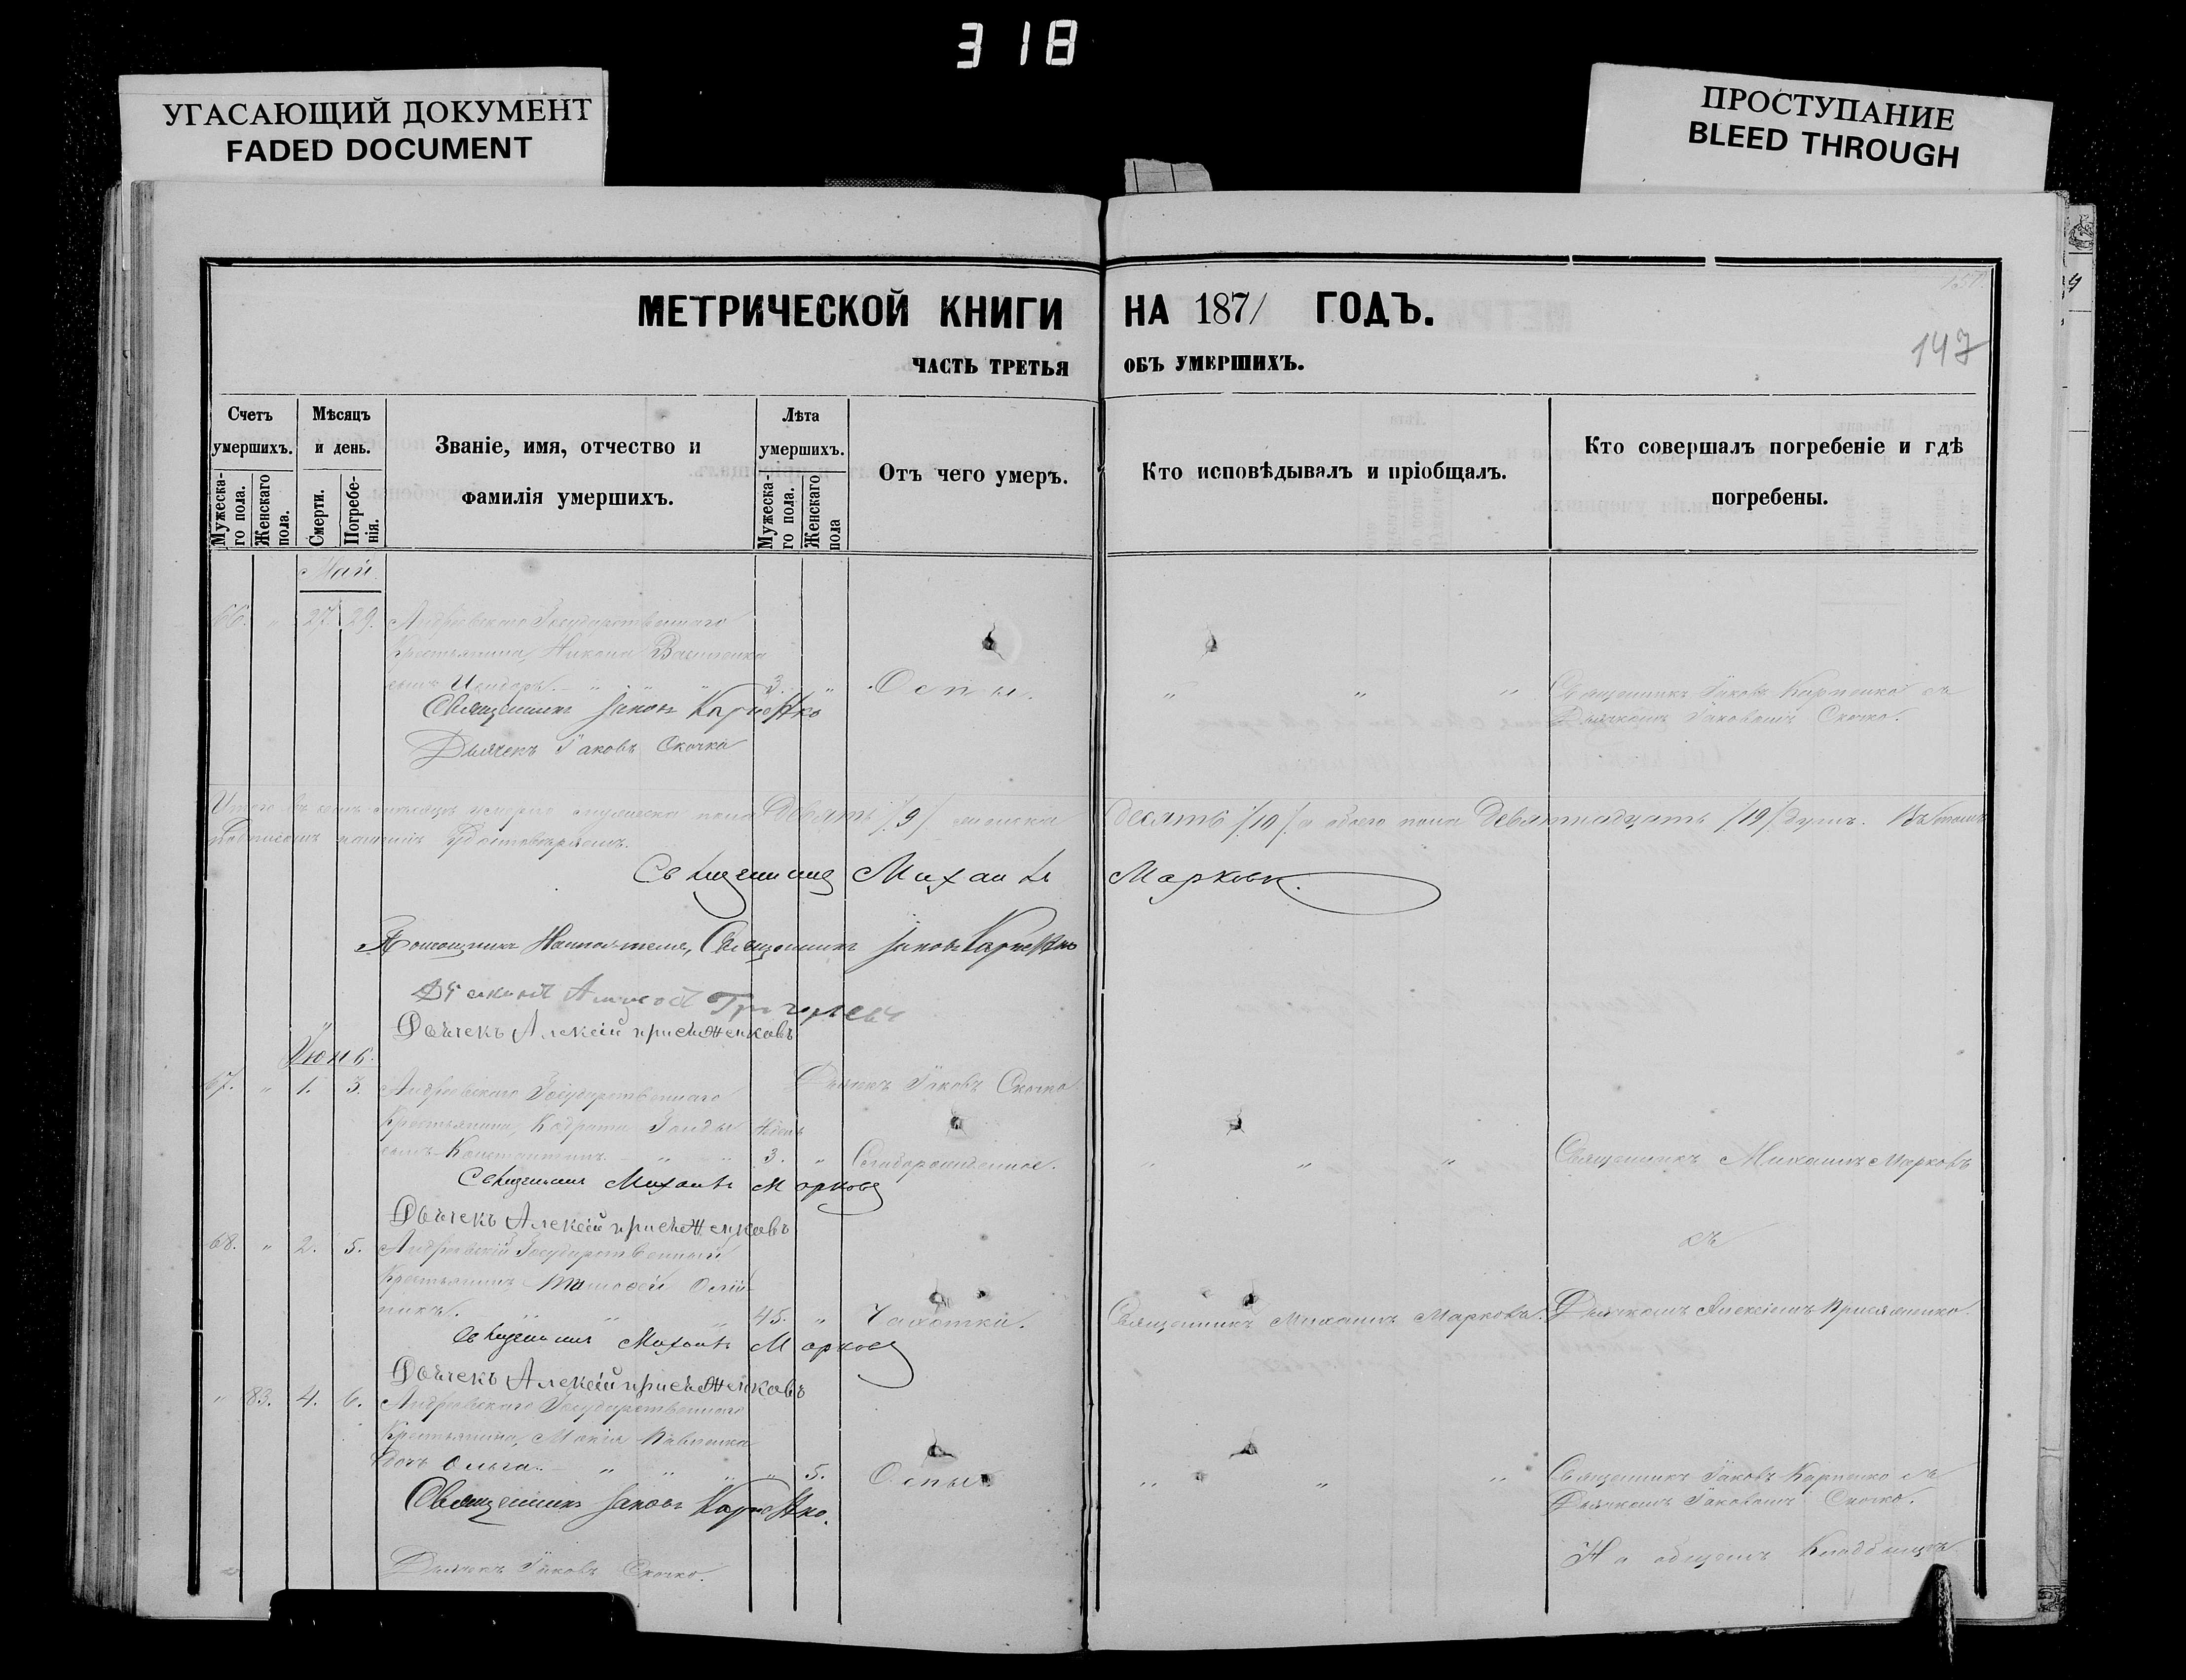 318
УГАСАЮЩИЙ ДОКУМЕНТ
FADED DOCUMENT
ПРОСТУПАНИЕ
BLEED THROUGH
МЕТРИЧЕСКОЙ КНИГИ НА 1871 ГОДЪ.
147
ЧАСТЬ ТРЕТЬЯ ОБЪ УМЕРШИХЪ.
Счетъ умершихъ.
Мужеска-го пола.
Женскаго пола.
Мѣсяцъ и день.
Смерти.
Погребе-нія.
Званіе, имя, отчество и фамилія умершихъ.
Лѣта умершихъ.
Мужеска-го пола.
Женскаго пола
Отъ чего умеръ.
Кто исповѣдывалъ и пріобщалъ.
Кто совершалъ погребеніе и гдѣ погребены.
Май
66. " 27. 29. Андреевскаго Государственнаго
Крестьянина, Никона
сынъ Исидоръ. " " " 3. " Оспы. " " " Священникъ Іаковъ Карпенко съ
Священникъ Іаковъ Карпенко
Дьячкомъ Іаковомъ Скочко.
Дьячекъ Іаковъ Скочко
Итого въ семъ мѣсяцѣ умерло мужеска пола Девять /9/ женска десять /10/ а обоего пола Девятнадцать /19/ душъ. Въ томъ
Подписомъ нашимъ Удостовѣряемъ.
Священникъ Михаилъ Марковъ.
Помощникъ Настоятеля, Священникъ Іаковъ Карпенко
Дьячекъ Алексій
Іюнь.
Дьячекъ Іаковъ Скочко
67. " 1. 3. Андреевскаго Государственнаго
Крестьянина, Кодрата
сынъ Константинъ. " " 3. " " " " Священникъ Михаилъ Марковъ
Священникъ Михаилъ Марковъ
Дьячекъ Алексій
съ
68. " 2. 5. Андреевскій Государственный
Крестьянинъ Тимофей Олій-
никъ. " " " 45. " Чахотки. Священникъ Михаилъ Марковъ. Дьячкомъ Алексіемъ
Священникъ Михаилъ Марковъ
Дьячекъ Алексій
" 83. 4. 6. Андреевскаго Государственнаго
Крестьянина,
дочь Ольга. " " " " 5. Оспы. " " " Священникъ Іаковъ Карпенко съ
Священникъ Іаковъ Карпенко.
Дьячкомъ Іаковомъ Скочко.
На общемъ Кладбищѣ
Дьячекъ Іаковъ Скочко.